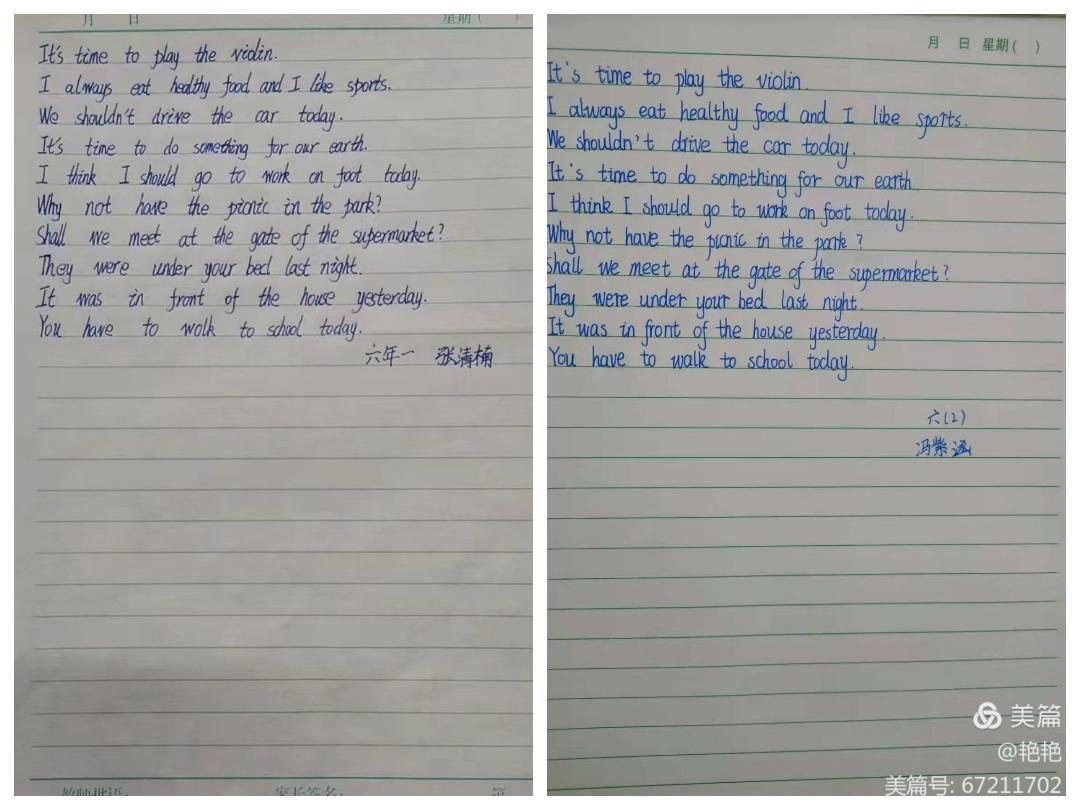 月 日 星期( )
It's time to play the violin.
I always eat healthy food and I like sports.
We shouldn't drive the car today.
It's time to do something for our earth.
I think I should go to work on foot today.
Why not have the picnic in the park?
Shall we meet at the gate of the supermarket?
They were under your bed last night.
It was in front of the house yesterday.
You have to wolk to school today.
六年一 张清楠
教师批语: 家长签名: 第
月 日 星期( )
It's time to play the violin.
I always eat healthy food and I like sports.
We shouldn't drive the car today.
It's time to do something for our earth.
I think I should go to work on foot today.
Why not have the picnic in the park?
Shall we meet at the gate of the supermarket?
They were under your bed last night.
It was in front of the house yesterday.
You have to walk to school today.
六(2)
冯紫涵
美篇
@艳艳
美篇号: 67211702